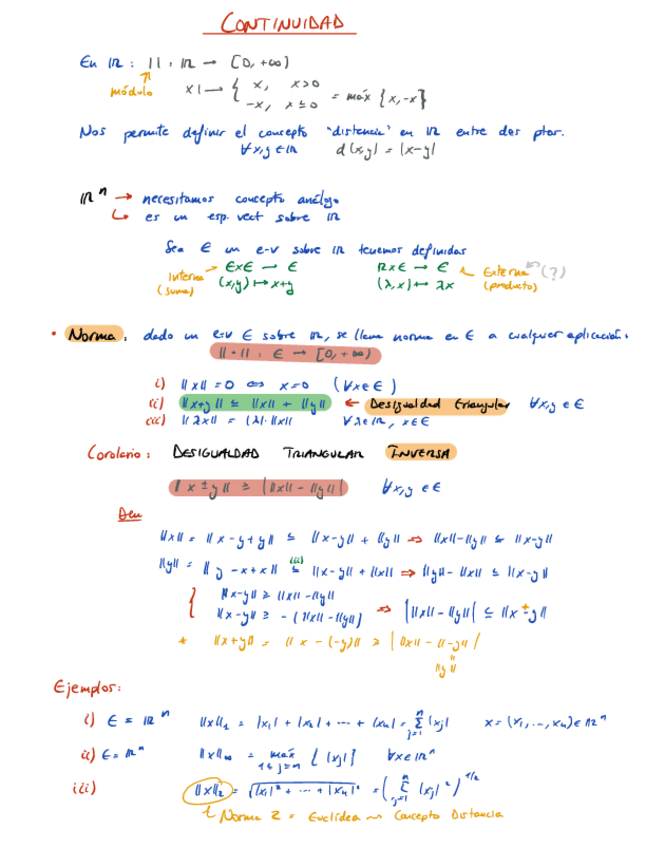 CONTINUIDAD
En ℝ : | | : ℝ → [0, +∞)
módulo
x| → { x, x>0
-x, x ≤ 0 = máx {x, -x}
Nos permite definir el concepto "distancia" en ℝ entre dos ptos.
∀x,y ∈ ℝ d(x,y) = |x-y|
ℝⁿ → necesitamos concepto análogo
↳ es un esp. vect sobre ℝ
Sea E un e-v sobre ℝ tenemos definidas
Interna (suma) → E×E → E ℝ×E → E ← Externa (?)
(x,y) ↦ x+y (λ,x) ↦ λx (producto)
• Norma: dado un e-v E sobre ℝ, se llama norma en E a cualquier aplicación:
||·|| : E → [0, +∞)
i) ||x|| = 0 ⇔ x=0 (∀x∈E)
ii) ||x+y|| ≤ ||x|| + ||y|| ← Desigualdad triangular ∀x,y ∈ E
iii) ||λx|| = |λ|·||x|| ∀λ∈ℝ, x∈E
Corolario: DESIGUALDAD TRIANGULAR INVERSA
||x ± y|| ≥ | ||x|| - ||y|| | ∀x,y ∈ E
Dem
||x|| = ||x-y+y|| ≤ ||x-y|| + ||y|| ⇒ ||x||-||y|| ≤ ||x-y||
||y|| = ||y-x+x|| ≤ (iii) ||x-y|| + ||x|| ⇒ ||y||-||x|| ≤ ||x-y||
{ ||x-y|| ≥ ||x||-||y||
||x-y|| ≥ -(||x||-||y||) ⇒ | ||x||-||y|| | ≤ ||x ± y||
* ||x+y|| = ||x-(-y)|| ≥ | ||x|| - ||-y|| |
||
||y||
Ejemplos:
i) E = ℝⁿ ||x||₁ = |x₁| + |x₂| + ... + |xₙ| = Σⁿⱼ₌₁ |xⱼ| x = (x₁, ..., xₙ) ∈ ℝⁿ
ii) E = ℝⁿ ||x||∞ = máx 1≤j≤n { |xⱼ| } ∀x∈ℝⁿ
iii) ||x||₂ = √(|x₁|² + ... + |xₙ|²) = (Σⁿⱼ₌₁ |xⱼ|²)^1/2
↑ Norma 2 = Euclídea ~ Concepto Distancia